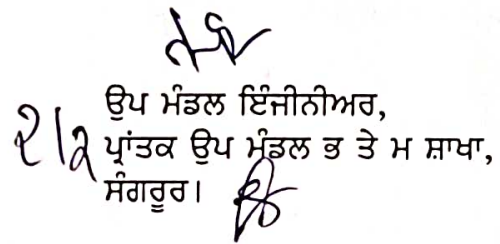 ਉਪ ਮੰਡਲ ਇੰਜੀਨੀਅਰ,
ਪ੍ਰਾਂਤਕ ਉਪ ਮੰਡਲ ਭ ਤੇ ਮ ਸ਼ਾਖਾ,
ਸੰਗਰੂਰ।